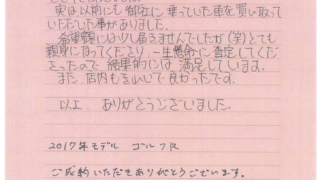 実は以前にも御社に乗っていた車を買い取って
いただいた事がありました。
希望額には少し届きませんでしたが(笑)とても
親身になってくださり、一生懸命に査定してくだ
さったので結果的には満足しています。
また、店内も
良かったです。
以上 ありがとうございました。
2017年モデル ゴルフR
ご成約いただきありがとうございます。